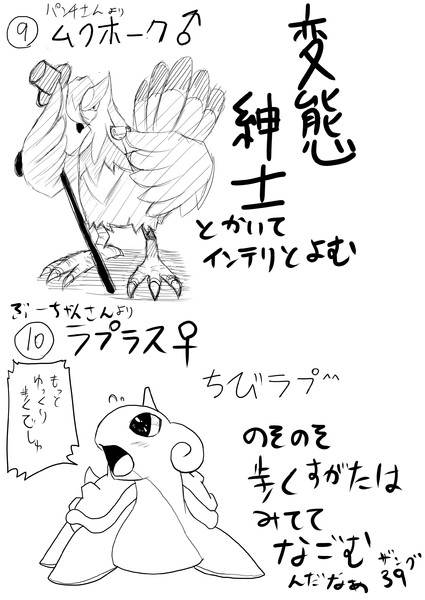 パンチさんより
⑨ ムクホーク♂
変態
紳士
とかいて
インテリとよむ
ぶーちゃんさんより
⑩ ラプラス♀
もって
ゆっくり
歩くでしゅ
ちびラプ^^
のそのそ
歩くすがたは
みてて
なごむ
んだなぁ
ザング
39